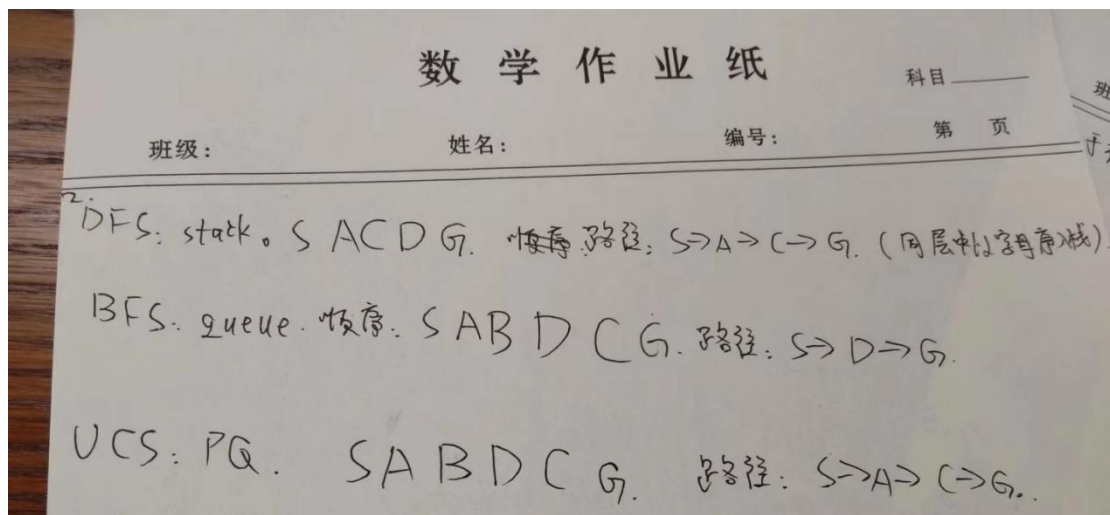 数学作业纸
科目
班
班级: 姓名: 编号: 第 页
2. DFS: stack。S A C D G. 顺序 路径: S→A→C→G. (同层中以字母序入栈)
BFS: queue. 顺序: S A B D C G. 路径: S→D→G.
UCS: PQ. S A B D C G. 路径: S→A→C→G.